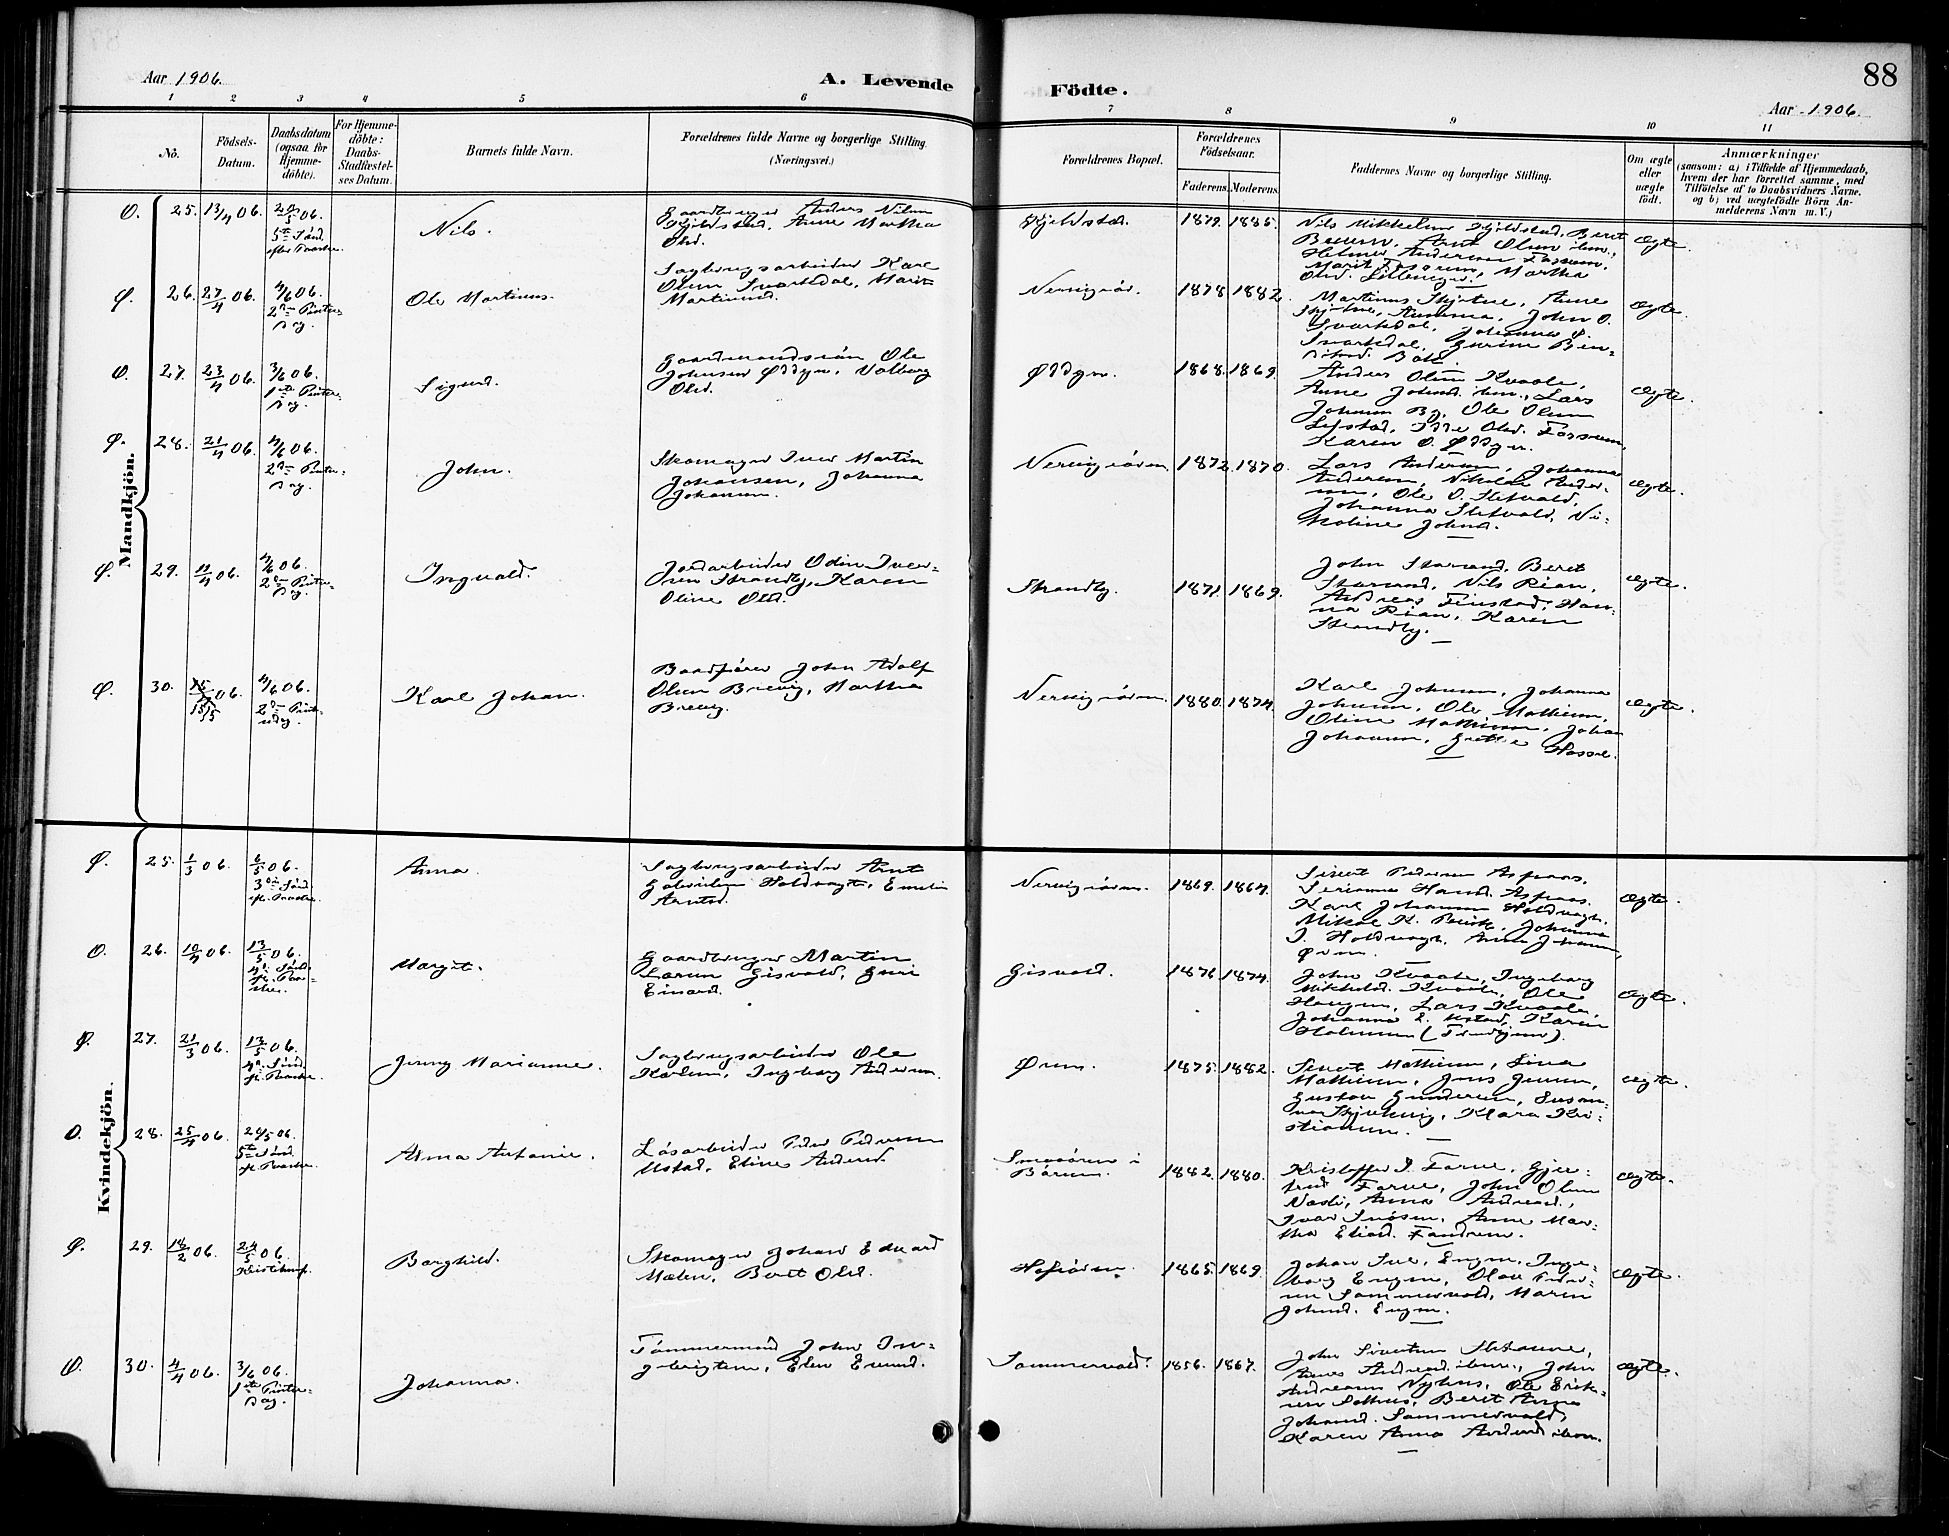 Aar 1906.
A. Levende
Födte.
88
Aar 1906.
1 2 3 4 5 6 7 8 9 10 11
No.
Födsels-
Datum.
Daabsdatum
(ogsaa for
Hjemme-
döbte).
For Hjemme-
döbte:
Daabs-
Stadfæstel-
ses Datum.
Barnets fulde Navn.
Forældrenes fulde Navne og borgerlige Stilling.
(Næringsvei.)
Forældrenes Bopæl.
Forældrenes
Födselsaar.
Faderens. Moderens.
Faddernes Navne og borgerlige Stilling.
Om ægte
eller
uægte
födt.
Anmærkninger
(saasom: a) i Tilfælde af Hjemmedaab,
hvem der har forrettet samme, med
Tilföielse af to Daabsvidners Navne.
og b) ved uægtefödte Börn An-
melderens Navn m. V.)
Mandkjön.
O. 25. 13/4 06. 20/5 06.
5te Sönd.
efter Paaske.
Nils.
Gaardbruger Anders Nilsen
Kjeldstad, Anne Martha
Olsd.
Kjeldstad.
1879. 1885.
Nils Mikkelsen Kjeldstad, Beret
Helmer Andersen Fossum,
Marit Fossum, Martha
ægte.
Ø. 26. 27/4 06. 4/6 06.
2den Pintse-
dag.
Ole Martinus.
Sagbrugsarbeider Karl
Olsen Svartdal, Marit
Martinusd.
1878. 1882.
Martinus Skjølne, Anne
John O.
Svartdal, Johannes O.
ægte.
O. 27. 23/4 06. 3/6 06.
1ste Pintse-
dag.
Sigurd.
Gaardmandssøn Ole
Johnsen Øddyn, Valborg
Olsd.
Øddyn.
1868. 1869.
Anders Olsen Kvaale,
Anne Johnsd. ibm., Lars
Johnsen By, Ole Olsen
Fossum,
Karen O. Øddyn.
ægte.
Ø. 28. 21/4 06. 4/6 06.
2den Pintse-
dag.
John.
Skomager Iver Martin
Johansen, Johanna
Johansen.
1872. 1870.
Lars Andersen, Johanna
Andersen, Nikolai Ander-
sen, Ole O. Sletvold,
Johanna Sletvold, Ni-
koline Johnsd.
ægte.
Ø. 29. 11/4 06. 4/6 06.
2den Pintse-
dag.
Ingvald.
Jordarbeider Odin Iver-
sen Strandby, Karen
Oline Olsd.
Strandby.
1871. 1869.
John Storsand, Beret
Storsand, Nils Rian,
Andreas Finstad, Han-
na Rian, Karen
Strandby.
ægte.
Ø. 30. 15/5 06. 4/6 06.
15/5
2den Pint-
sedag
Karl Johan.
Baadfører John Adolf
Olsen Brevig, Martha
Brevig.
1880. 1874.
Karl Johnsen, Johanna
Johnsen, Ole Mathisen,
Oline Mathisen, Johan
Johansen, Grethe Hassel.
ægte.
Kvindekjön.
Ø. 25. 1/3 06. 6/5 06.
3die Sönd.
eft. Paaske.
Anna.
Sagbrugsarbeider Arnt
Gabrielsen Holdvagt, Emelie
Arntsd.
1869. 1864.
Sivert Pedersen Aspaas,
Serianna Hansd. Aspaas,
Karl Johansen Holdvagt,
Johanna
J. Holdvagt, Anne Johansen,
Øren.
ægte.
O. 26. 10/4 06. 13/5 06.
4de Sönd.
eft. Paa-
ske.
Margit.
Gaardbruger Martin
Larsen Gisvold, Guri
Einarsd.
Gisvold.
1876. 1874.
John Kvaale, Ingeborg
Mikkelsd. Kvaale, Ole
Haugen, Lars Kvaale,
Johanna E. Mstad, Karen
ægte.
Ø. 27. 21/3 06. 13/5 06.
4de Sönd.
eft. Paaske.
Jenny Marianne.
Sagbrugsarbeider Ole
Karlsen, Ingeborg Andersen.
Øren.
1875. 1882.
Sivert Mathisen, Lina
Mathisen, Jens Jensen,
Gustav Gundersen, Susan-
na Skjelvvig, Klara Kri-
stiansen.
ægte.
O. 28. 25/4 06. 20/5 06.
5te Sönd.
eft. Paaske.
Anna Antonie.
Løsarbeider Peder Pedersen
Mstad, Eline Andersd.
i
Børsen.
1882. 1880.
Kristoffer J. Farve, Gjer-
trud Farve, John Olsen
Næsli, Anna Andreasd.,
Anne Mar-
tha Eliasd. Fandrem.
ægte.
Ø. 29. 14/2 06. 24/5 06.
Kristi Himf.
Borghild.
Skomager Johan Edvard
Mælen, Beret Olsd.
1865. 1869.
Johan Iver. Engen, Inge-
borg Engen, Olav Peder-
sen Sommervold, Maren
Johnsd. Engen.
ægte.
O. 30. 4/4 06. 3/6 06.
1ste Pintse-
dag.
Johanna.
Tømmermand John In-
gebrigtsen, Elen Evensd.
Sommervold.
1856. 1867.
John Sivertsen
Andreasd. ibm., John
Andreasen Nyhus, Ole Erik-
sen Solhus, Beret Anna
Johansd. Sommervold,
Karen Anna Andersd ibm.
ægte.